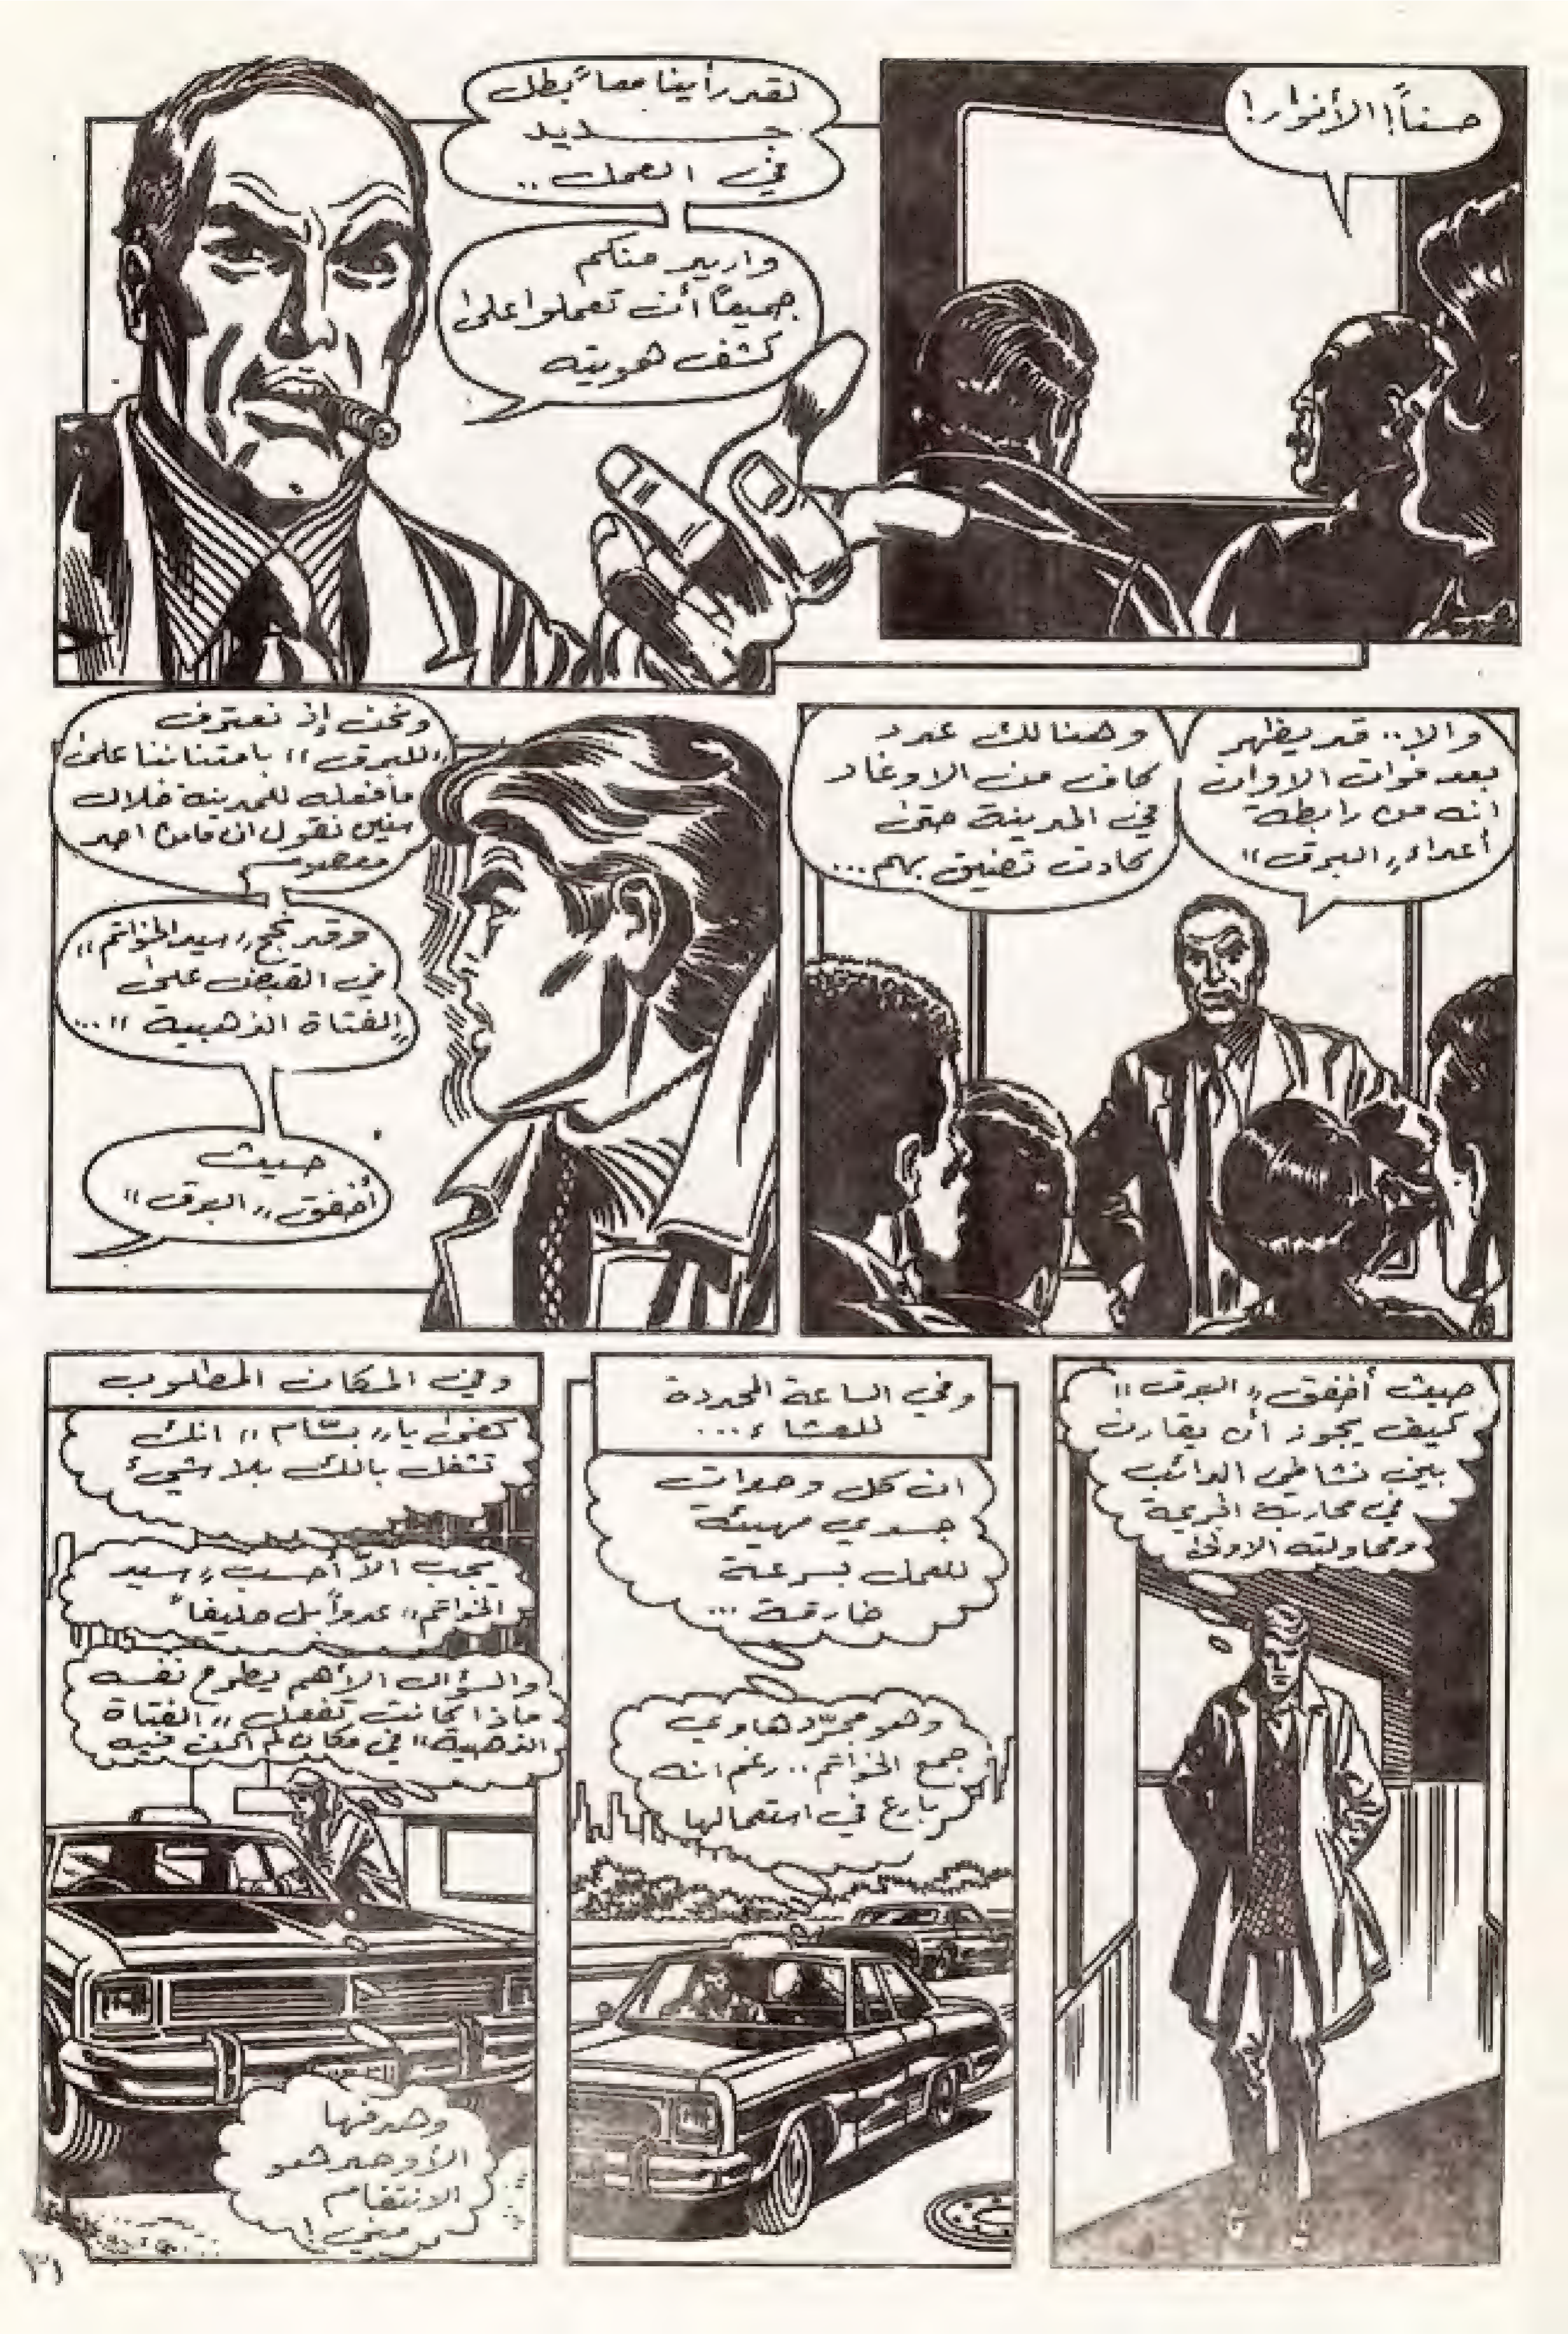 حسناً! الأنوار!
لقد رأينا معاً بطل
جديد
في العمل ..
واريد منكم
جميعاً أن تعملوا على
كشف هويته
والا.. قد يظهر
بعد فوات الاوان
انه من رابطة
أعداء «البرق»
وهنالك عدد
كاف من الاوغاد
في المدينة حتى
كادت تضيق بهم...
ونحن إذ نعترف
«للبرق» بامتناننا على
ما فعله للمدينة خلال
سنين نقول ان ما من احد
معصوم
وقد نجح «سيد الخواتم»
في القبض على
«الفتاة الذهبية»...
حيث
أخفق «البرق»
حيث أخفق «البرق»
كيف يجوز أن يقارن
بين نشاطي الدائب
في محاربة الجريمة
ومحاولته الاولى
وفي الساعة المحددة
للعشاء...
ان كل وحدات
جسدي مهيئة
للعمل بسرعة
خارقة ...
وهو مجرّد هاوي
جمع الخواتم.. رغم انه
بارع في استعمالها
وفي المكان المطلوب
كفى يا «بسّام» انك
تشغل بالك بلا شيء
يجب الاّ أحسب «سيد
الخواتم» عدواً بل حليفاً
والسؤال الأهم يطرح نفسه
ماذا كانت تفعل «الفتاة
الذهبية» في مكان لم اكن فيه
وهدفها
الأوحد هو
الانتقام
مني!
٢١